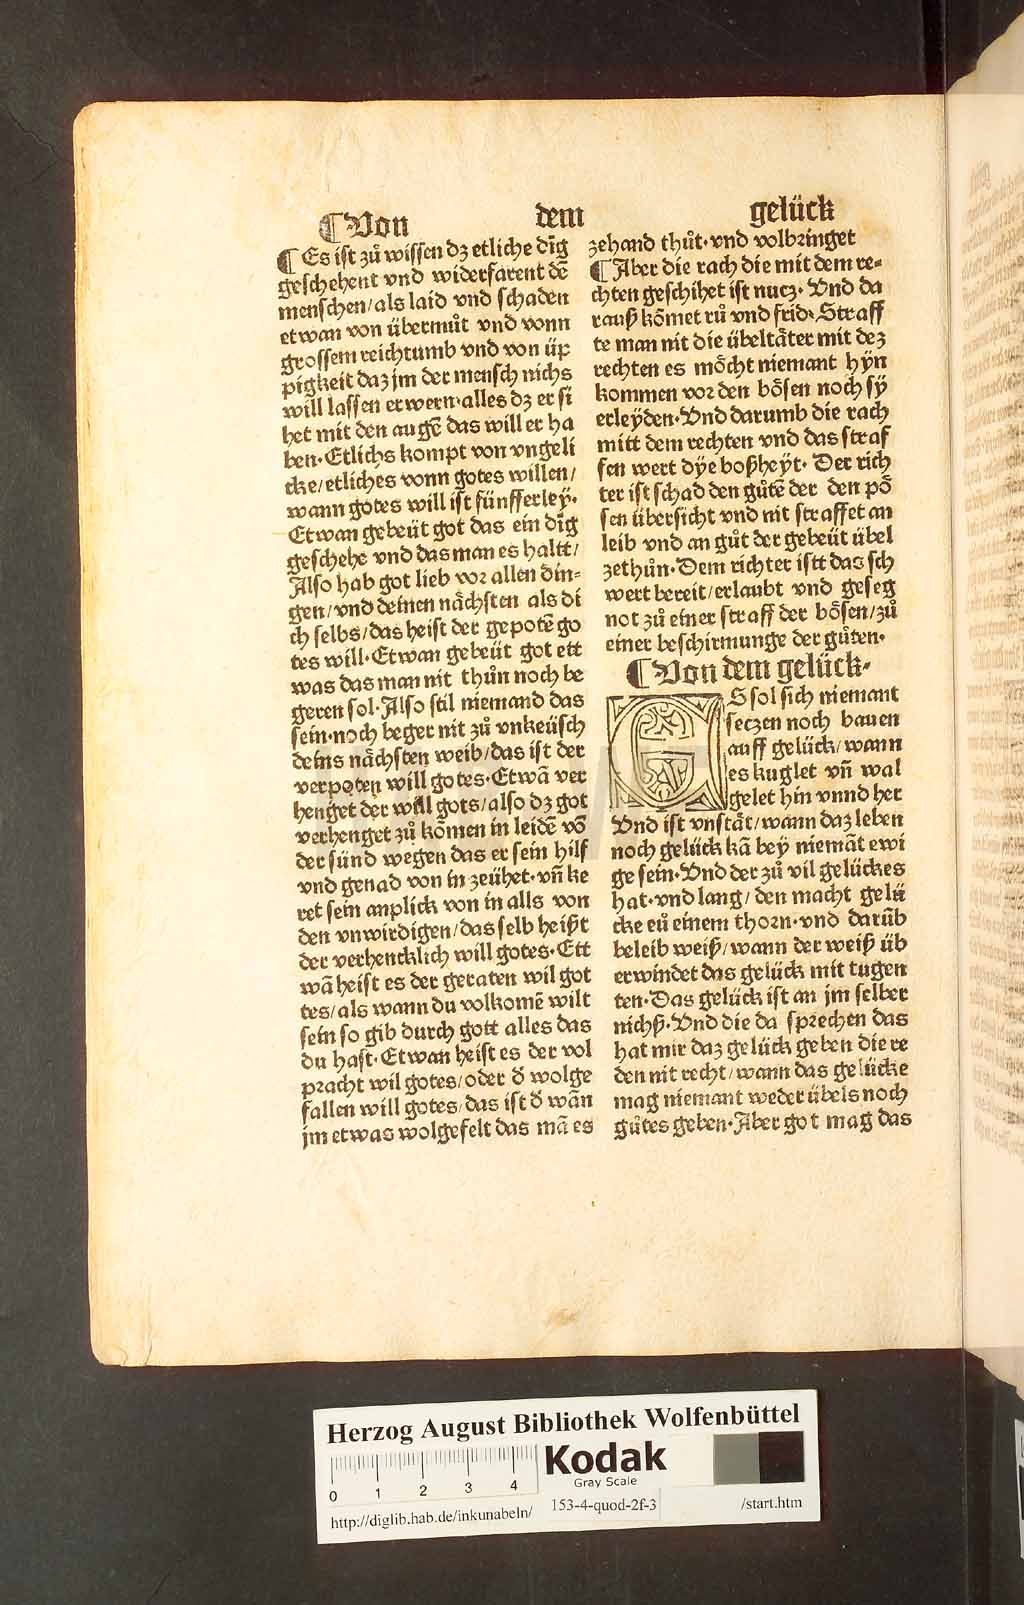 ¶Von dem gelück
¶Es ist zů wissen dz etliche dīg
geschehent vnd widerfarent dē
menschen/als laid vnd schaden
etwan von übermůt vnd vonn
grossem reichtumb vnd von üp
pigkeit daz jm der mensch nichs
will lassen erwern·alles dz er si
het mit den augē das will er ha
ben·Etlichs kompt von vngeli
cke/etliches vonn gotes willen/
wann gotes will ist fünfferleÿ·
Etwan gebeüt got das ein dīg
geschehe vnd das man es haltt/
Also hab got lieb vor allen din⸗
gen/vnd deinen nächsten als di
ch selbs/das heist der gepotē go
tes will·Etwan gebeüt got ett
was das man nit thůn noch be
geren sol·Also stil niemand das
sein·noch beger nit zů vnkeüsch
deins nächsten weib/das ist der
verpoten will gotes·Etwā ver
henget der will gots/also dz got
verhenget zů kōmen in leidē võ
der sünd wegen das er sein hilf
vnd genad von in zeühet·vñ ke
ret sein anplick von in alls von
den vnwirdigen/das selb heißt
der verhencklich will gotes·Ett
wā heist es der geraten wil got
tes/als wann du volkomē wilt
sein so gib durch gott alles das
du hast·Etwan heist es der vol
pracht wil gotes/oder ð wolge
fallen will gotes/das ist ð wān
jm etwas wolgefelt das mā es
zehand thůt·vnd volbringet
¶Aber die rach die mit dem re⸗
chten geschihet ist nucz·Vnd da
rauß kōmet rů vnd frid·Straff
te man nit die übeltäter mit dez
rechten es möcht niemant hÿn
kommen vor den bösen noch sÿ
erleÿden·Vnd darumb die rach
mitt dem rechten vnd das straf
fen wert dÿe boßheÿt·Der rich
ter ist schad den gůtē der den pö
sen übersicht vnd nit straffet an
leib vnd an gůt der gebeüt übel
zethůn·Dem richter istt das sch
wert bereit/erlaubt vnd geseg
not zů einer straff der bösen/zů
einer beschirmunge der gůten·
¶Von dem gelück·
ES sol sich niemant
seczen noch bauen
auff gelück/wann
es kuglet vñ wal
gelet hin vnnd her
Vnd ist vnstät/wann daz leben
noch gelück kā beÿ niemāt ewi
ge sein·Vnd der zů vil gelückes
hat·vnd lang/den macht gelü
cke eů einem thorn·vnd darūb
beleib weiß/wann der weiß üb
erwindet das gelück mit tugen
ten·Das gelück ist an jm selber
nichß·Vnd die da sprechen das
hat mir daz gelück geben die re
den nit recht/wann das gelücke
mag niemant weder übels noch
gůtes geben·Aber got mag das
Herzog August Bibliothek Wolfenbüttel
Kodak
Gray Scale
0 1 2 3 4
http://diglib.hab.de/inkunabeln/ 153-4-quod-2f-3 /start.htm